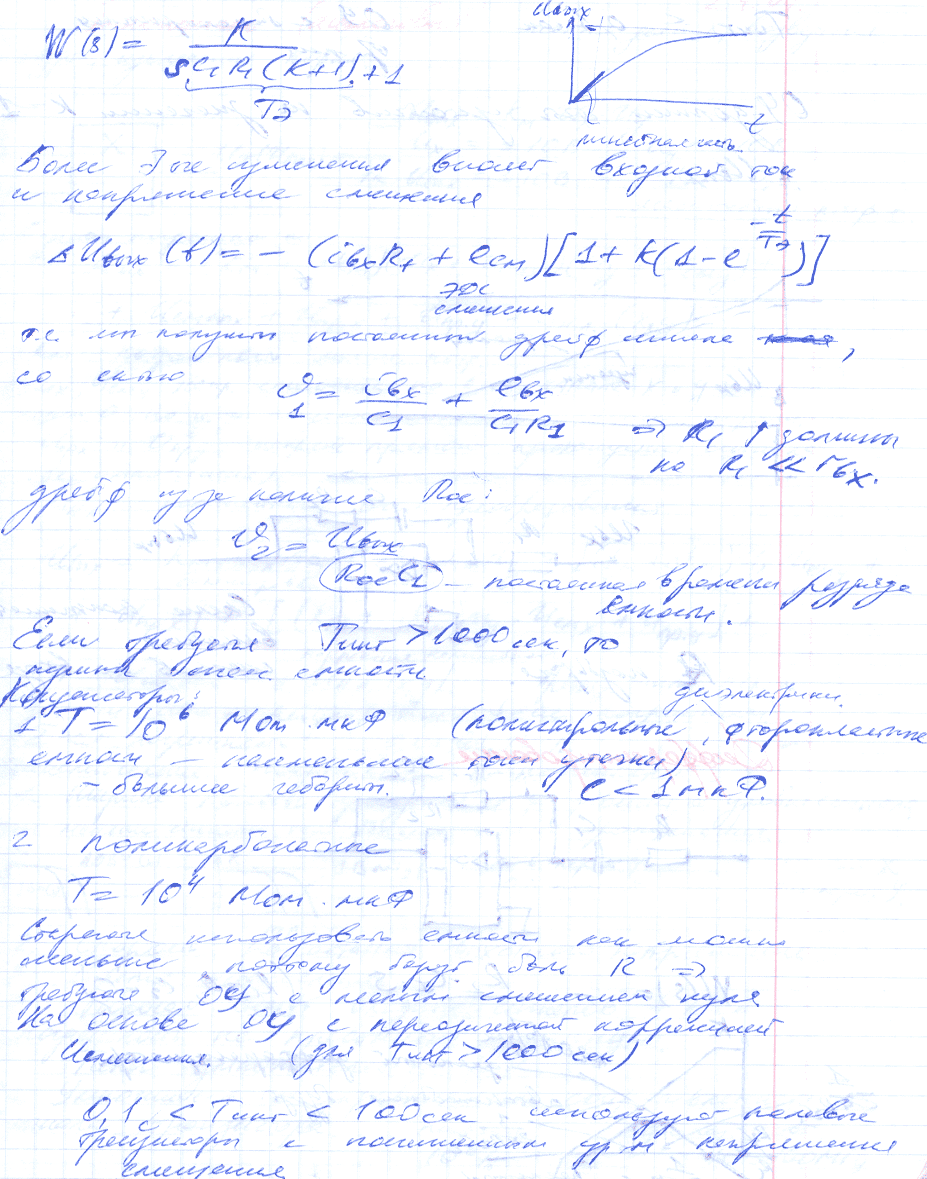 Uвых
W(s) = K / (s C₁R₁(K+1) + 1)
Tэ
t
линейная часть
Более изменения вносит входной ток
и напряжение смещения
ΔUвых(t) = −(iвхR₁ + eсм)[1 + K(1 − e^(−t/Tэ))]
ЭДС
смещения
т.е. мы получим постоянный дрейф ,
со
υ₁ = iвх/C₁ + eвх/(C₁R₁) ⇒ R₁ ↑ должны
но R₁ << rвх.
дрейф из за наличие Rос:
υ₂ = Uвых/(RосC₁) – постоянная времени разряда
емкости.
Если требуется Tинт > 1000 сек, то
нужны емкости
Конденсаторы:
диэлектрики
1 T = 10⁶ Мом·мкФ (полистирольные, фторопластные
емкости – наименьшие токи утечки)
– большие габариты. C < 1 мкФ.
2 поликарбонатные
T = 10⁴ Мом·мкФ
Стараются использовать емкости как можно
меньше, поэтому берут боль R ⇒
требуются ОУ с малым смещением нуля
На основе ОУ с периодической коррекцией
смещения. (для Tинт > 1000 сек)
0,1 с < Tинт < 100 сек используют полевые
транзисторы с пониженным ур-м напряжения
смещения